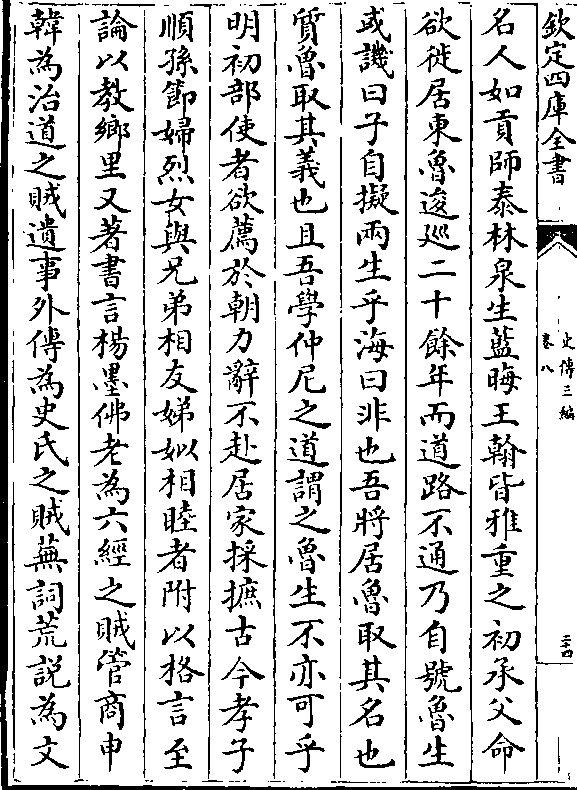 欽定四庫全書
史傳三編
卷八
二十四
名人如貢師泰林泉生藍晦王翰皆雅重之初承父命
欲徙居東魯逡巡二十餘年而道路不通乃自號魯生
或譏曰子自擬兩生乎海曰非也吾將居魯取其名也
質魯取其義也且吾學仲尼之道謂之魯生不亦可乎
明初部使者欲薦於朝力辭不赴居家採摭古今孝子
順孫節婦烈女與兄弟相友娣姒相睦者附以格言至
論以教鄉里又著書言楊墨佛老為六經之賊管商申
韓為治道之賊遺事外傳為史氏之賊蕪詞荒説為文